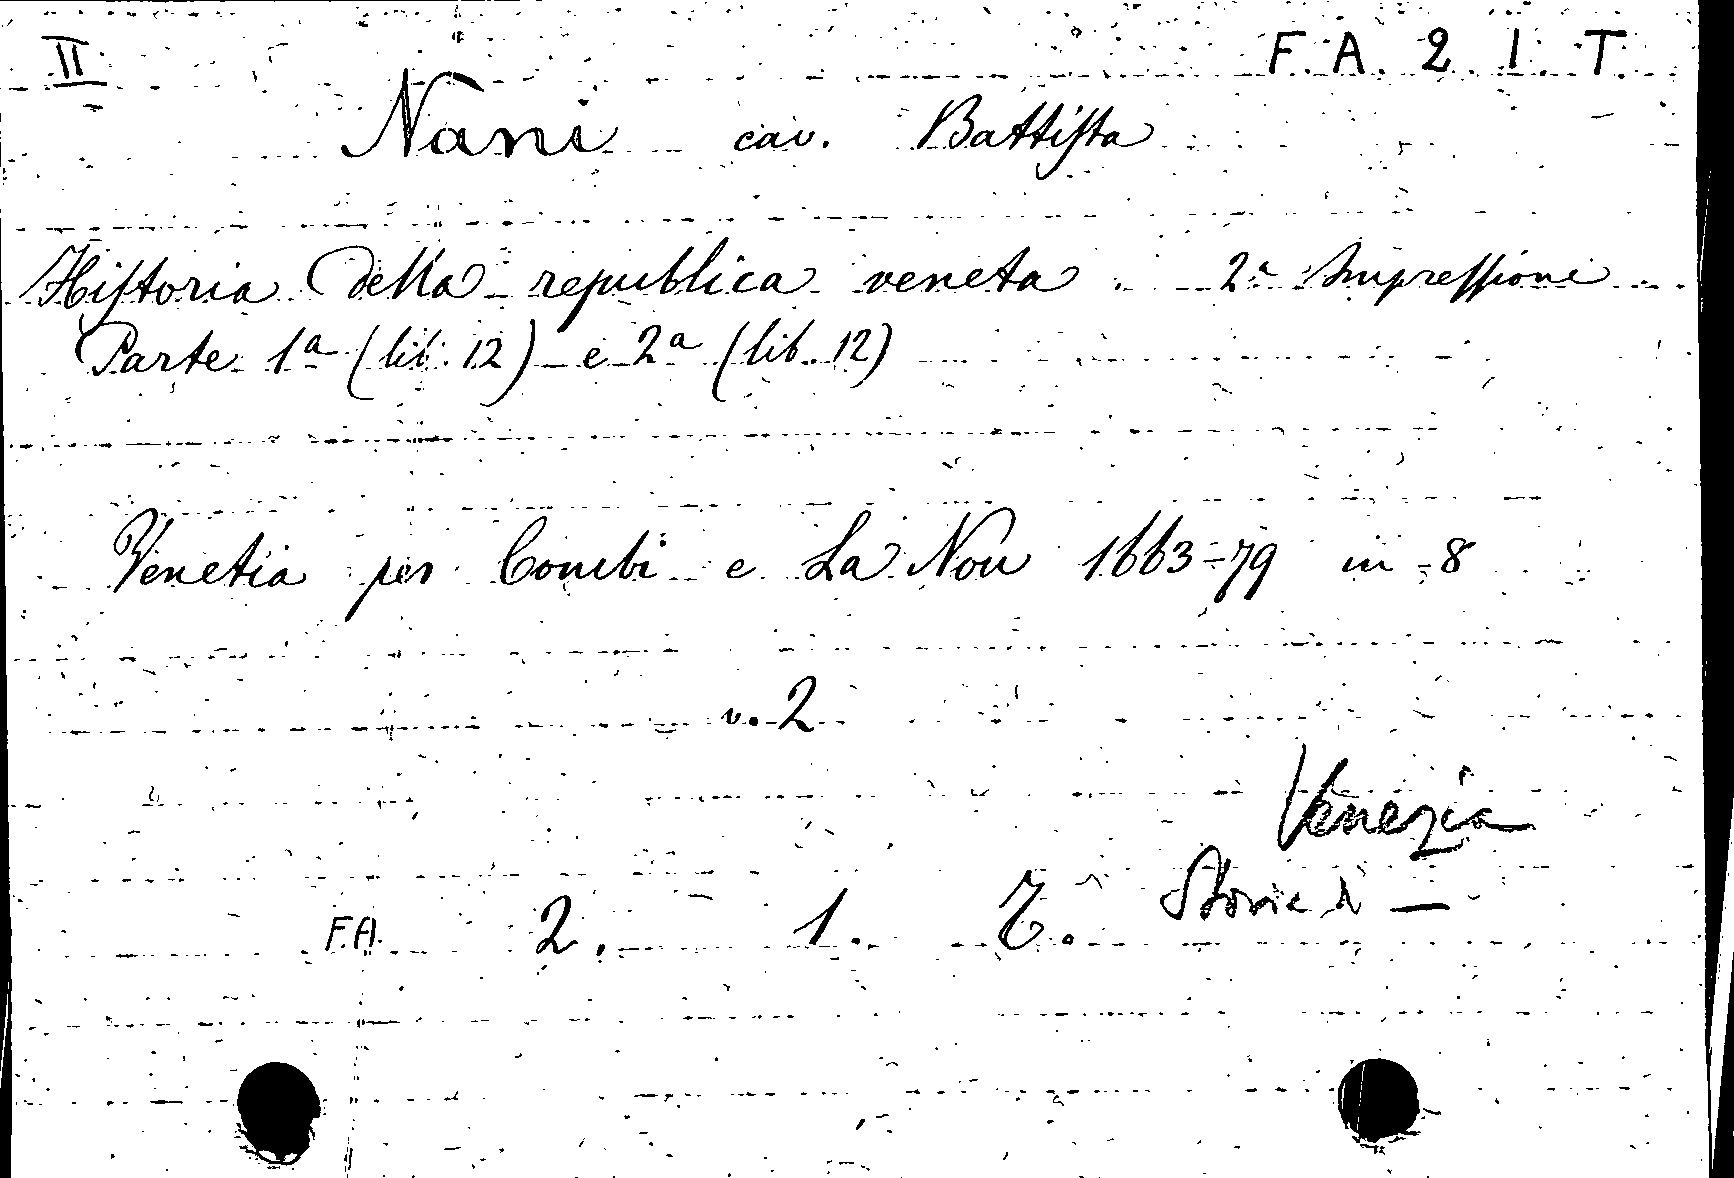 II F. A. 2. 1. T.
Nani cav. Battista
Historia della republica veneta. 2ª Impressione
Parte 1ª (lib. 12) e 2ª (lib. 12)
Venetia per Combi e La Nou 1663-79 in-8
v. 2
Venezia
Storie di —
F.A. 2. 1. T.